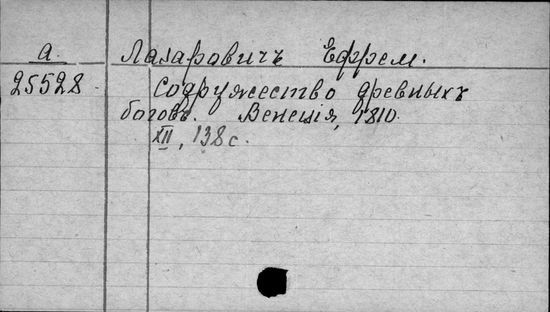 а. Лазаровичъ Ефрем.
25528 Содружество древныхъ
боговъ. Венеція, 1810.
XII, 138 с.